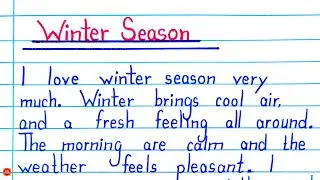 Winter Season
I love winter season very
much. Winter brings cool air,
and a fresh feeling all around.
The morning are calm and the
weather feels pleasant. I